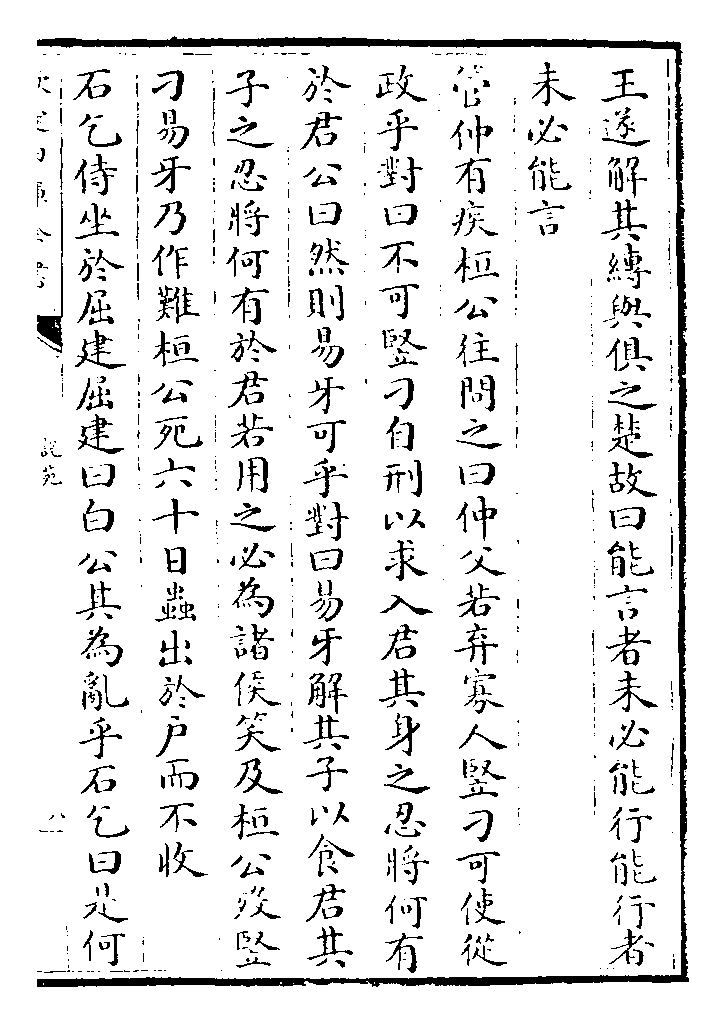 王遂解其縛與俱之楚故曰能言者未必能行能行者
未必能言
管仲有疾桓公往問之曰仲父若弃寡人豎刁可使從
政乎對曰不可豎刁自刑以求入君其身之忍將何有
於君公曰然則易牙可乎對曰易牙解其子以食君其
子之忍將何有於君若用之必為諸侯笑及桓公歿豎
刁易牙乃作難桓公死六十日蟲出於戶而不收
石乞侍坐於屈建屈建曰白公其為亂乎石乞曰是何
說苑